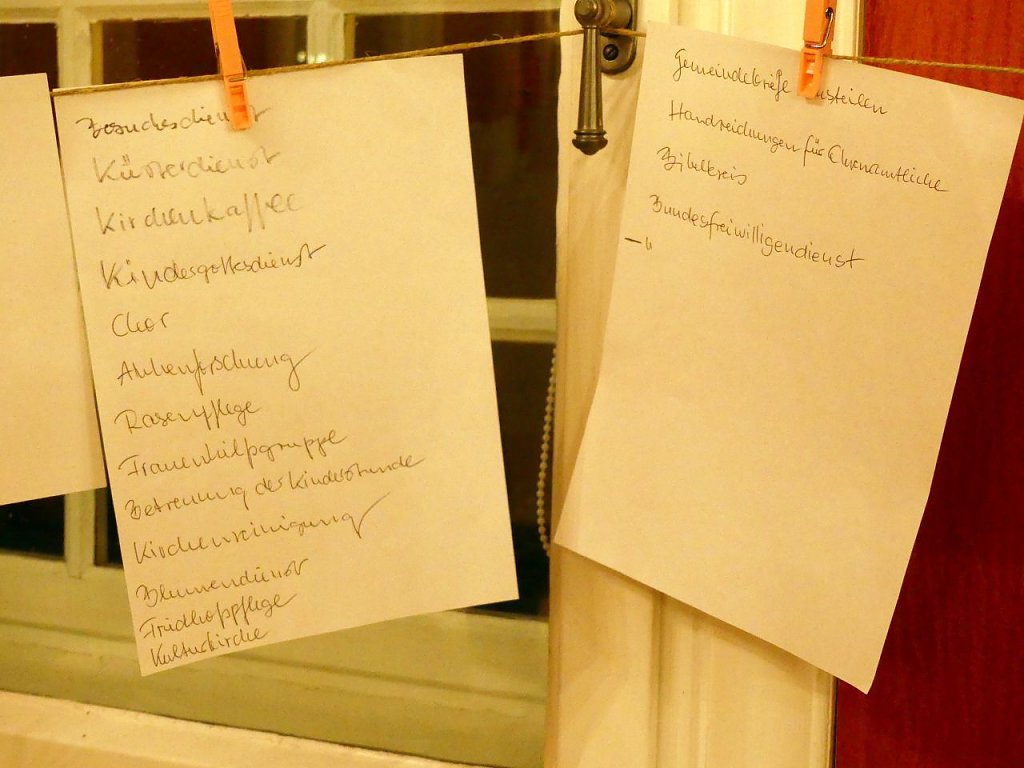 Besuchsdienst
Küsterdienst
Kirchenkaffee
Kindergottesdienst
Chor
Ahnenforschung
Rasenpflege
Frauenhilfsgruppe
Betreuung der Kinderstunde
Kirchenreinigung
Blumendienst
Friedhofspflege
Kulturkirche
Gemeindebriefe austeilen
Handreichungen für Ehrenamtliche
Bibelkreis
Bundesfreiwilligendienst